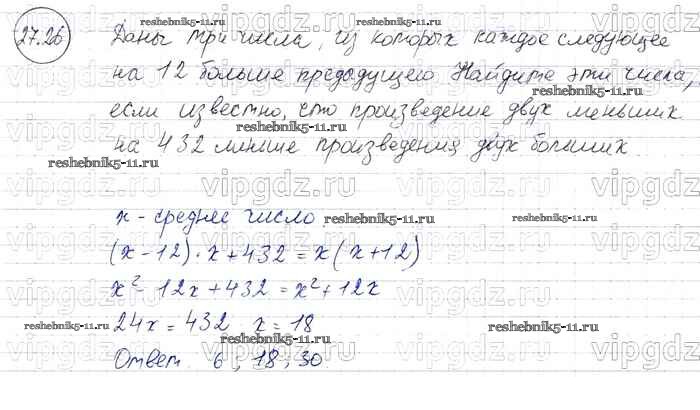 27.26 Даны три числа, из которых каждое следующее
на 12 больше предыдущего. Найдите эти числа,
если известно, что произведение двух меньших
на 432 меньше произведения двух больших.
x - среднее число.
(x-12)·x+432=x(x+12)
x²-12x+432=x²+12x
24x=432 x=18
Ответ 6, 18, 30.